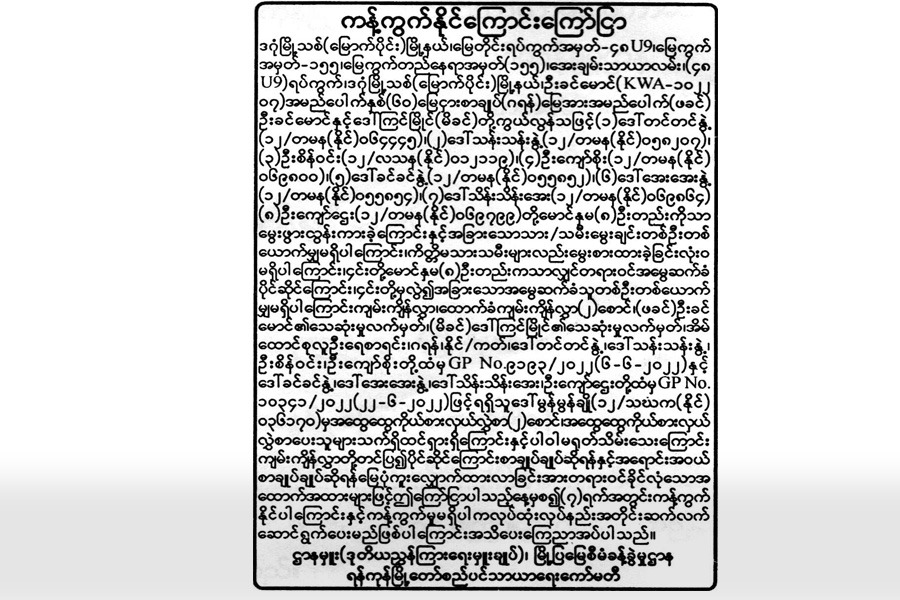 ကန့်ကွက်နိုင်ကြောင်းကြော်ငြာ
ဒဂုံမြို့သစ်(မြောက်ပိုင်း)မြို့နယ်၊မြေတိုင်းရပ်ကွက်အမှတ်-၄၈ U9၊မြေကွက်
အမှတ်-၁၅၅၊မြေကွက်တည်နေရာအမှတ်(၁၅၅)၊အေးချမ်းသာယာလမ်း၊(၄၈
U9)ရပ်ကွက်၊ဒဂုံမြို့သစ်(မြောက်ပိုင်း)မြို့နယ်၊ဦးခင်မောင်(KWA-၁၀၂၂
၀၇)အမည်ပေါက်နှစ်(၆၀)မြေငှားစာချုပ်(ဂရန်)မြေအားအမည်ပေါက်(ဖခင်)
ဦးခင်မောင်နှင့်ဒေါ်ကြင်မြိုင်(မိခင်)တို့ကွယ်လွန်သဖြင့်(၁)ဒေါ်တင်တင်နွဲ့
(၁၂/တမန(နိုင်)၀၆၄၄၄၅)၊(၂)ဒေါ်သန်းသန်းနွဲ့(၁၂/တမန(နိုင်)၀၅၈၂၀၇)၊
(၃)ဦးစိန်ဝင်း(၁၂/လသန(နိုင်)၀၁၂၁၁၉)၊(၄)ဦးကျော်စိုး(၁၂/တမန(နိုင်)
၀၆၉၈၀၀)၊(၅)ဒေါ်ခင်ခင်နွဲ့(၁၂/တမန(နိုင်)၀၅၅၈၅၂)၊(၆)ဒေါ်အေးအေးနွဲ့
(၁၂/တမန(နိုင်)၀၅၅၈၅၄)၊(၇)ဒေါ်သိန်းသိန်းအေး(၁၂/တမန(နိုင်)၀၆၉၈၆၄)
(၈)ဦးကျော်ဌေး(၁၂/တမန(နိုင်)၀၆၉၇၉၉)တို့မောင်နှမ(၈)ဦးတည်းကိုသာ
မွေးဖွားထွန်းကားခဲ့ကြောင်းနှင့်အခြားသောသား/သမီးမွေးချင်းတစ်ဦးတစ်
ယောက်မျှမရှိပါကြောင်း၊ကိတ္တိမသားသမီးများလည်းမွေးစားထားခဲ့ခြင်းလုံးဝ
မရှိပါကြောင်း၊၄င်းတို့မောင်နှမ(၈)ဦးတည်းကသာလျှင်တရားဝင်အမွေဆက်ခံ
ပိုင်ဆိုင်ကြောင်း၊၄င်းတို့မှလွဲ၍အခြားသောအမွေဆက်ခံသူတစ်ဦးတစ်ယောက်
မျှမရှိပါကြောင်းကျမ်းကျိန်လွှာ၊ထောက်ခံကျမ်းကျိန်လွှာ(၂)စောင်၊(ဖခင်)ဦးခင်
မောင်၏သေဆုံးမှုလက်မှတ်၊(မိခင်)ဒေါ်ကြင်မြိုင်၏သေဆုံးမှုလက်မှတ်၊အိမ်
ထောင်စုလူဦးရေစာရင်း၊ဂရန်၊နိုင်/ကတ်၊ဒေါ်တင်တင်နွဲ့၊ဒေါ်သန်းသန်းနွဲ့၊
ဦးစိန်ဝင်း၊ဦးကျော်စိုးတို့ထံမှGP No.၉၁၉၃/၂၀၂၂(၆-၆-၂၀၂၂)နှင့်
ဒေါ်ခင်ခင်နွဲ့၊ဒေါ်အေးအေးနွဲ့၊ဒေါ်သိန်းသိန်းအေး၊ဦးကျော်ဌေးတို့ထံမှGP No.
၁၀၃၄၁/၂၀၂၂(၂၂-၆-၂၀၂၂)ဖြင့်ရရှိသူဒေါ်မွန်မွန်ချို(၁၂/သဃက(နိုင်)
၀၃၆၁၇၀)မှအထွေထွေကိုယ်စားလှယ်လွှဲစာ(၂)စောင်၊အထွေထွေကိုယ်စားလှယ်
လွှဲစာပေးသူများသက်ရှိထင်ရှားရှိကြောင်းနှင့်ပါဝါမရုတ်သိမ်းသေးကြောင်း
ကျမ်းကျိန်လွှာတို့တင်ပြ၍ပိုင်ဆိုင်ကြောင်းစာချုပ်ချုပ်ဆိုရန်နှင့်အရောင်းအဝယ်
စာချုပ်ချုပ်ဆိုရန်မြေပုံကူးလျှောက်ထားလာခြင်းအားတရားဝင်ခိုင်လုံသောအ
ထောက်အထားများဖြင့်ဤကြော်ငြာပါသည့်နေ့မှစ၍(၇)ရက်အတွင်းကန့်ကွက်
နိုင်ပါကြောင်းနှင့်ကန့်ကွက်မှုမရှိပါကလုပ်ထုံးလုပ်နည်းအတိုင်းဆက်လက်
ဆောင်ရွက်ပေးမည်ဖြစ်ပါကြောင်းအသိပေးကြေညာအပ်ပါသည်။
ဌာနမှူး(ဒုတိယညွှန်ကြားရေးမှူးချုပ်)၊ မြို့ပြမြေစီမံခန့်ခွဲမှုဌာန
ရန်ကုန်မြို့တော်စည်ပင်သာယာရေးကော်မတီ